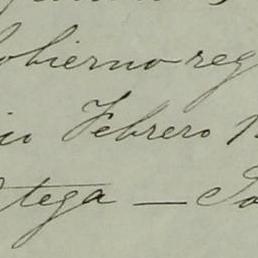 obierno reg
io Febrero
tega — Jo